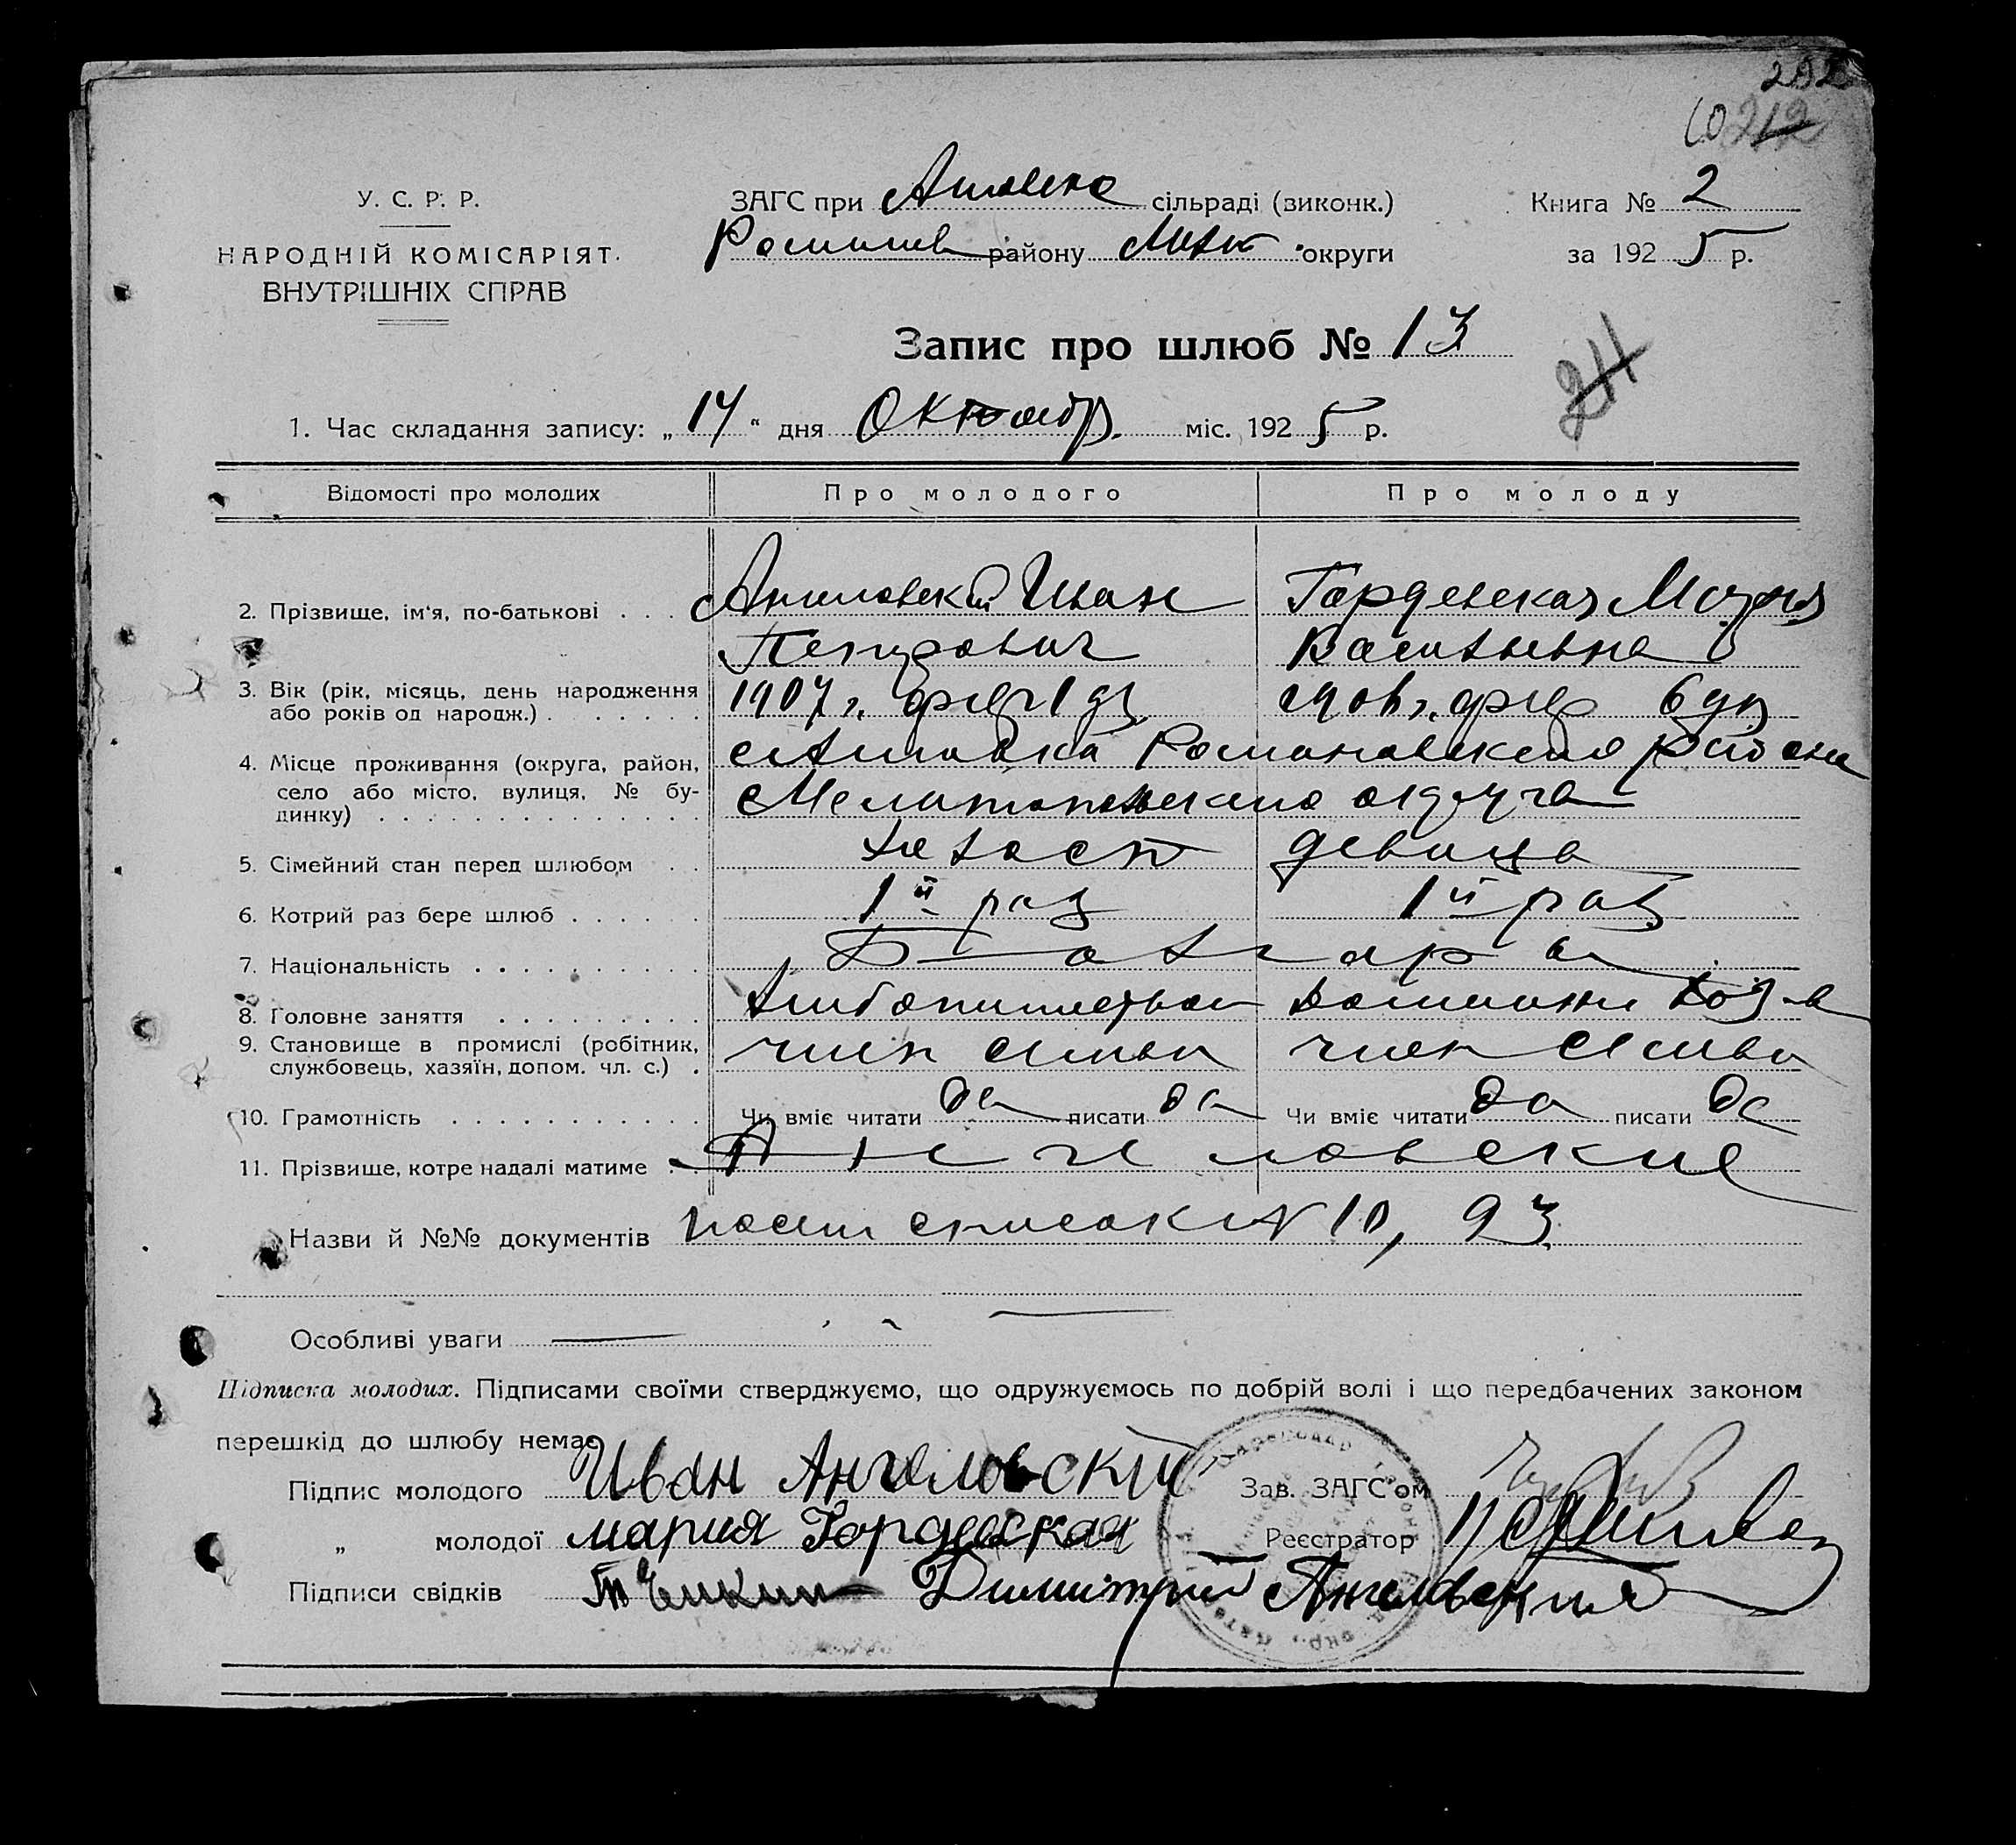 292
10 212
У. С. Р. Р.
НАРОДНІЙ КОМІСАРІЯТ
ВНУТРІШНІХ СПРАВ
ЗАГС при сільраді (виконк.)
району округи
Книга № 2
за 1925 р.
Запис про шлюб № 13
211
1. Час складання запису: „14“ дня Октябр. міс. 1925 р.
Відомості про молодих Про молодого Про молоду
2. Прізвище, ім'я, по-батькові . . . Ангеловский Иван Гордевская Мария
Петрович Васильевна
3. Вік (рік, місяць, день народження
або років од народж.) . . . . . . . 1907 г. фев 1 дн 1906 г. фев 6 дн
4. Місце проживання (округа, район,
село або місто, вулиця, № бу-
динку) . . . . . . . . . . . . . . Романовского района
Мелитопольского округа
5. Сімейний стан перед шлюбом . . холост девица
6. Котрий раз бере шлюб . . . . . . 1й раз 1й раз
7. Національність . . . . . . . . . . Болгары
8. Головне заняття . . . . . . . . . Хлебопашество домашн хоз-в
9. Становище в промислі (робітник,
службовець, хазяїн, допом. чл. с.) . член семьи член семьи
10. Грамотність . . . . . . . . . . . Чи вміє читати да писати да Чи вміє читати да писати да
11. Прізвище, котре надалі матиме . . Ангеловские
Назви й №№ документів посем список № 10, 93
Особливі уваги
Підписка молодих. Підписами своїми стверджуємо, що одружуємось по добрій волі і що передбачених законом
перешкід до шлюбу немає
Підпис молодого Иван Ангеловский Зав. ЗАГС'ом
„ молодої мария Гордевская Реєстратор
Підписи свідків Димитрий Ангеловский